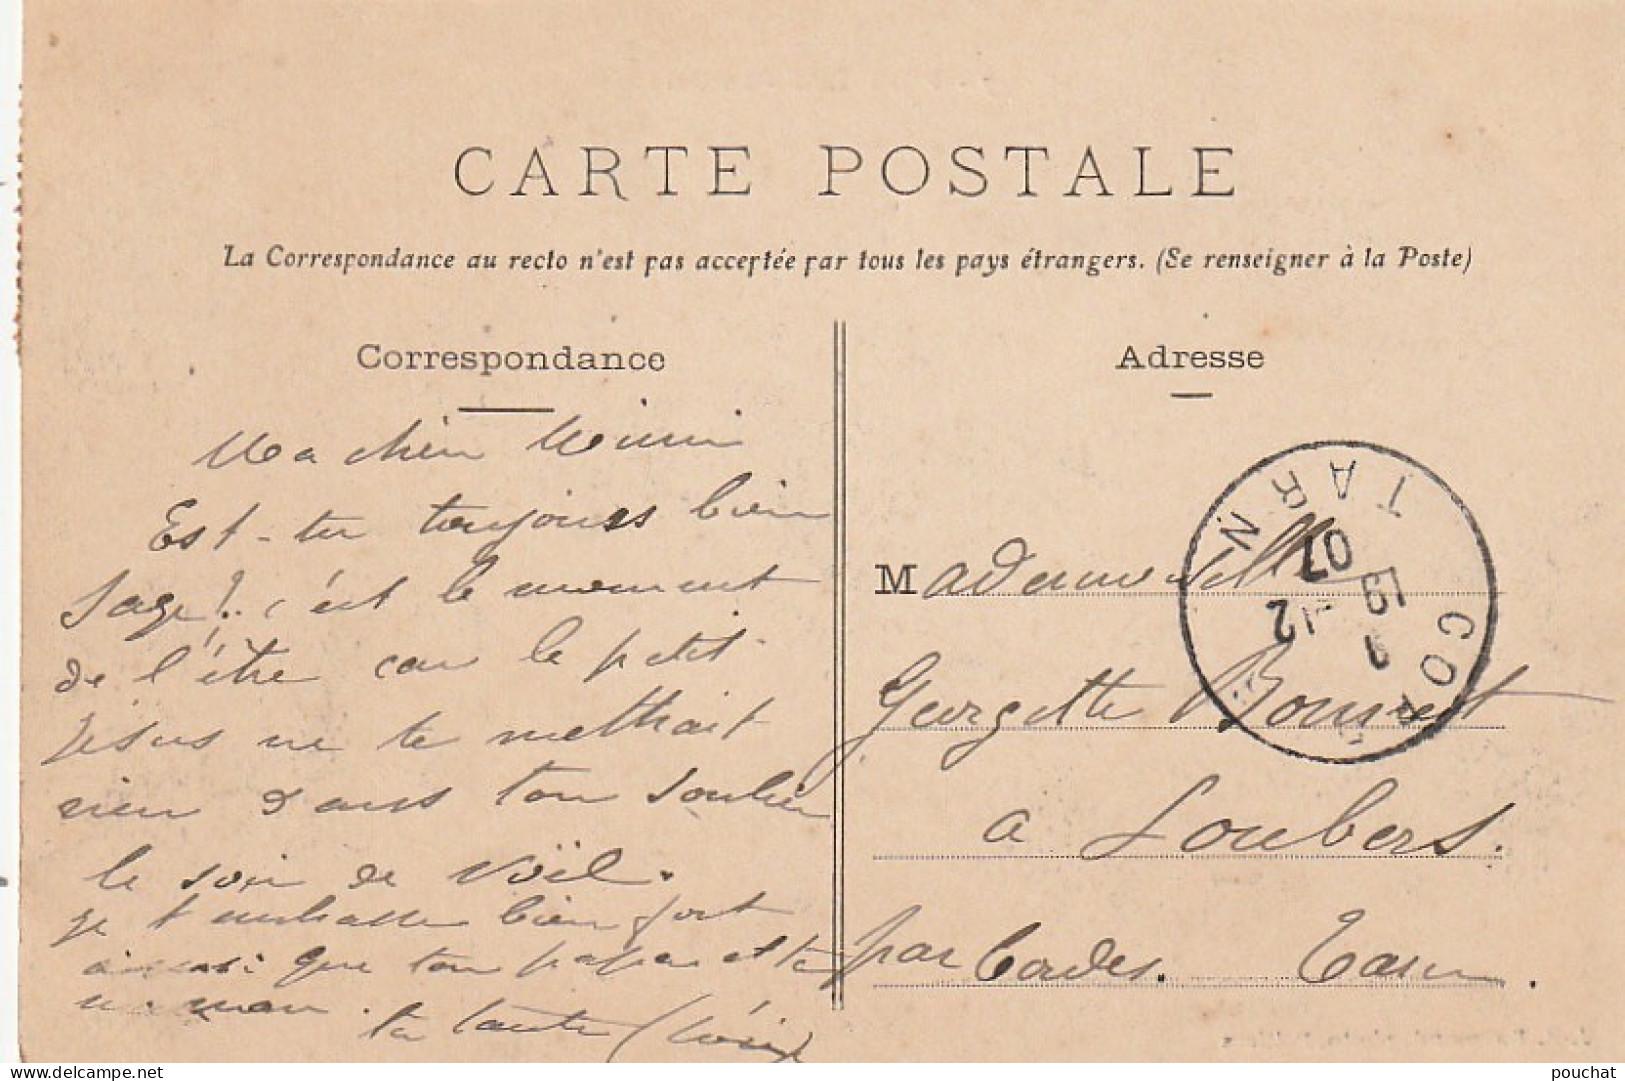 CARTE POSTALE
La Correspondance au recto n'est pas acceptée par tous les pays étrangers. (Se renseigner à la Poste)
Correspondance
Ma chère Mimi
Est-tu toujours bien
sage! c'est le moment
de l'être car le petit
Jésus ne te mettrait
rien dans ton soulier
le soir de Noël.
je t'embrasse bien fort
ainsi que ton papa et ta
maman.
ta tante
Adresse
Mademoiselle
Georgette
a Loubers.
par Cordes. Tarn.
CORDES
TARN
19
-12
07
pouchat